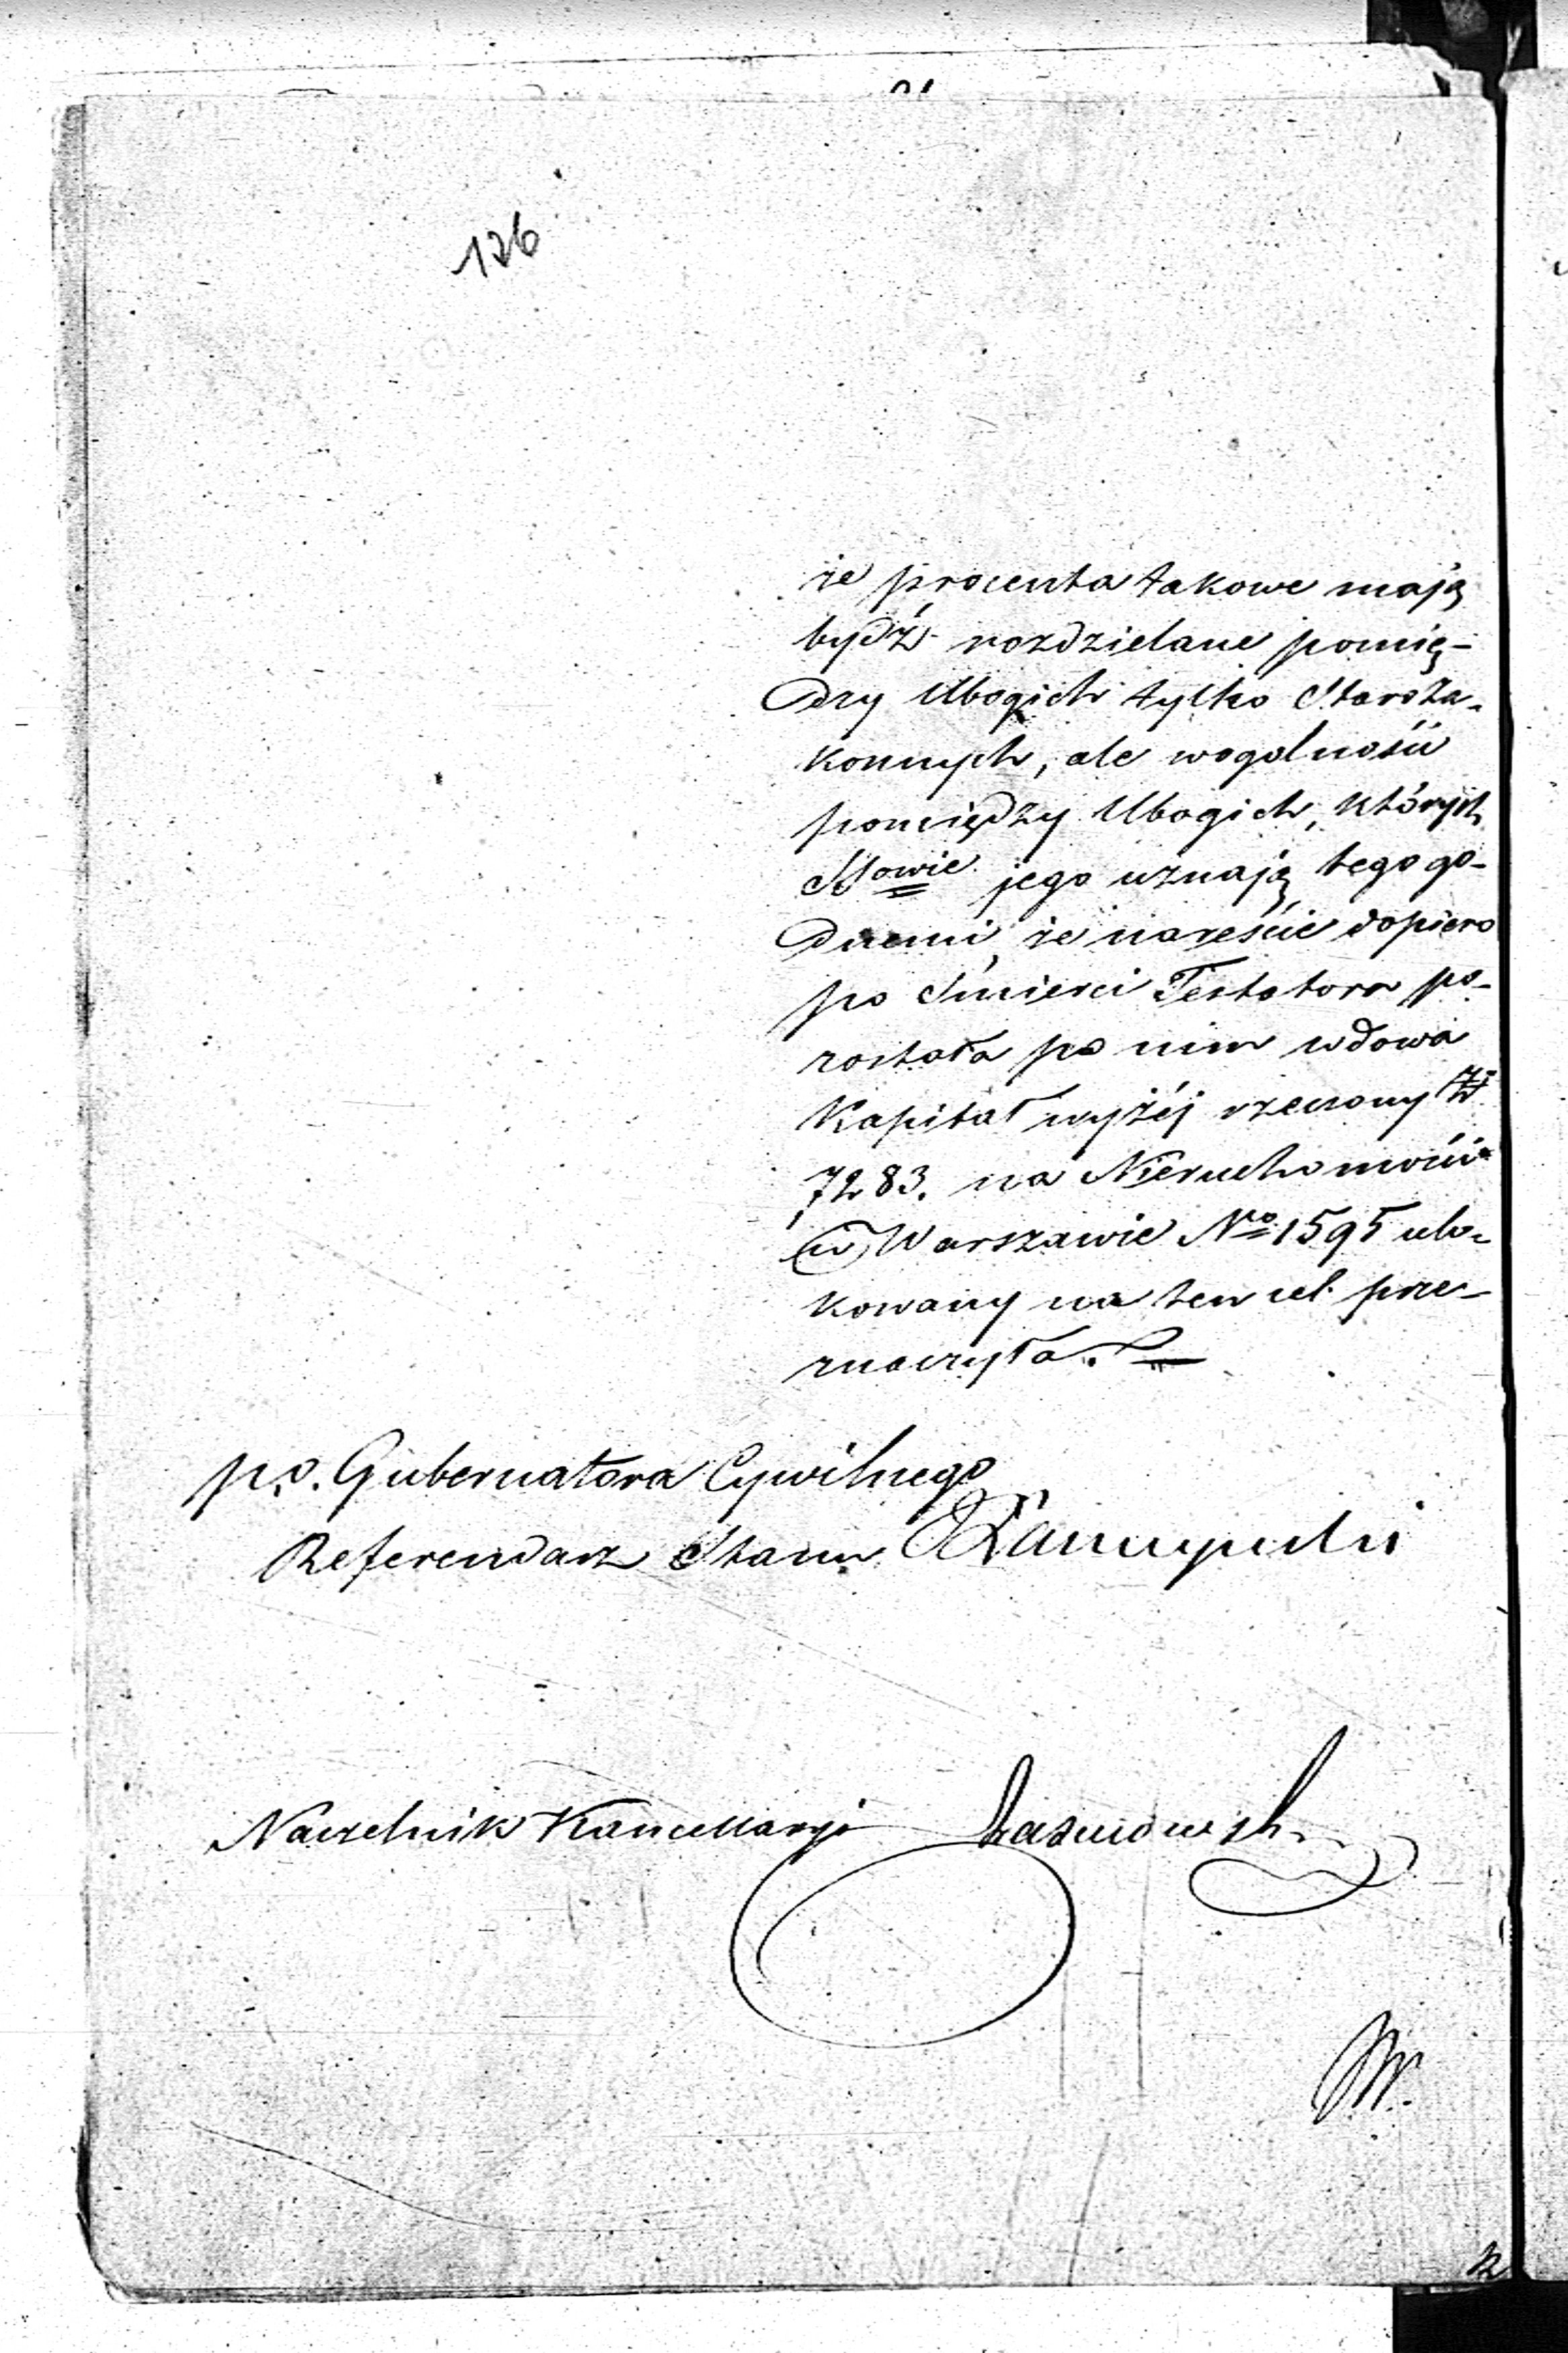 126
że procenta takowe mają
bydź rozdzielane pomię-
dzy Ubogich tylko Staroza-
konnych, ale wogolności
pomiędzy Ubogich, których
jego uznają tego go-
dnemi, że nareście dopiero
po śmierci Testatora po-
zostata po nim wdowa
Kapitał wyżéj rzeczony
7283. na Nieruchomości
w Warszawie No 1595 ulo-
kowany na ten cel prze-
znaczyła.
p.o. Gubernatora Cywilnego
Referendarz Stanu
Naczelnik Kancellaryi